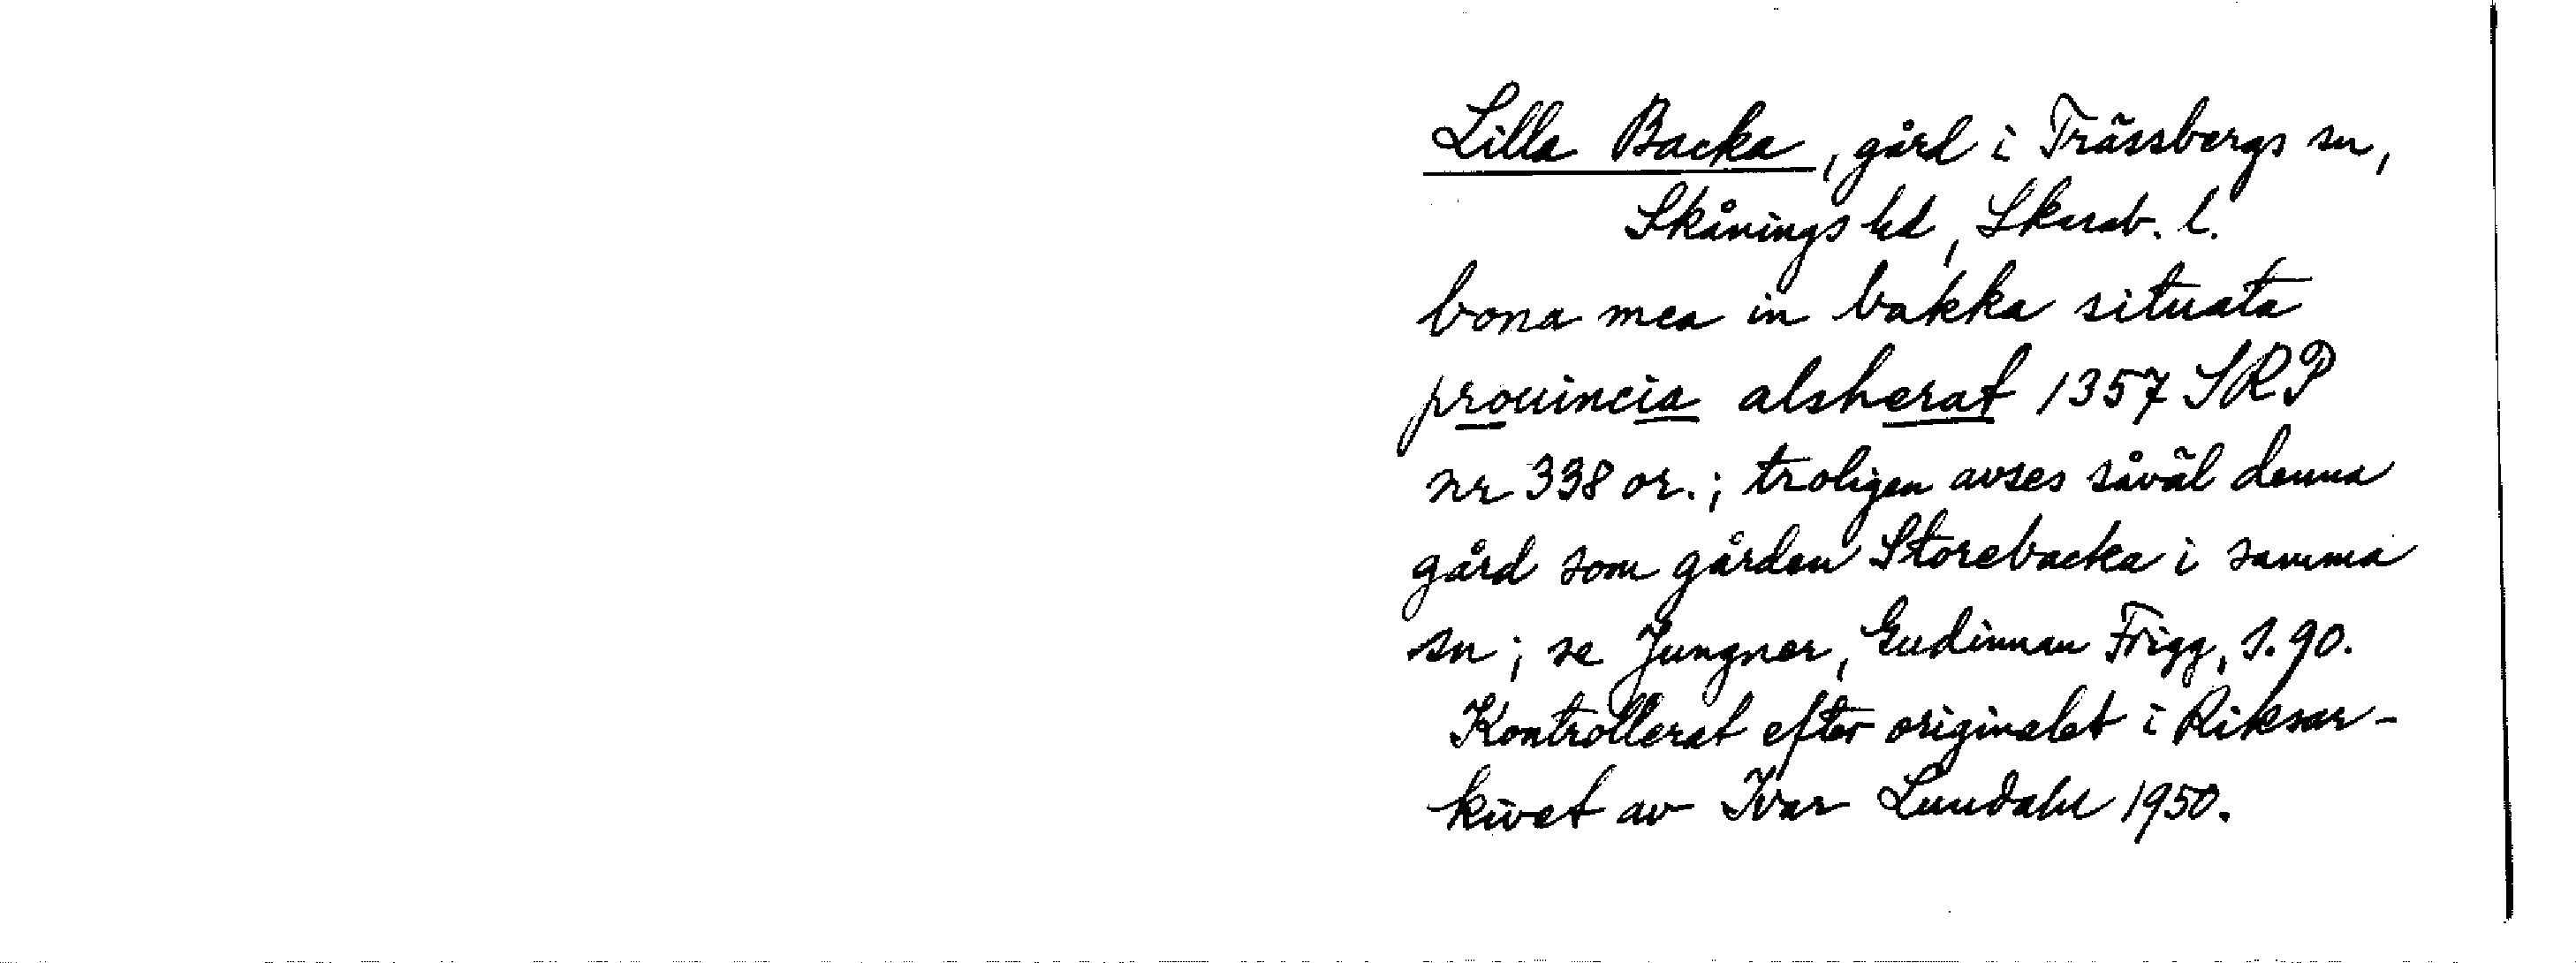 Lilla Backa, gård i Trässbergs sn,
Skånings hd, Skarab. l.
bona mea in bakka situata
prouincia alsherat 1357 SRP
nr 338 or.; troligen avses såväl denna
gård som gården Storebacka i samma
sn; se Jungner, Gudinnan Frigg, s. 90.
Kontrollerat efter originalet i Riksar-
kivet av Ivar Lundahl 1950.